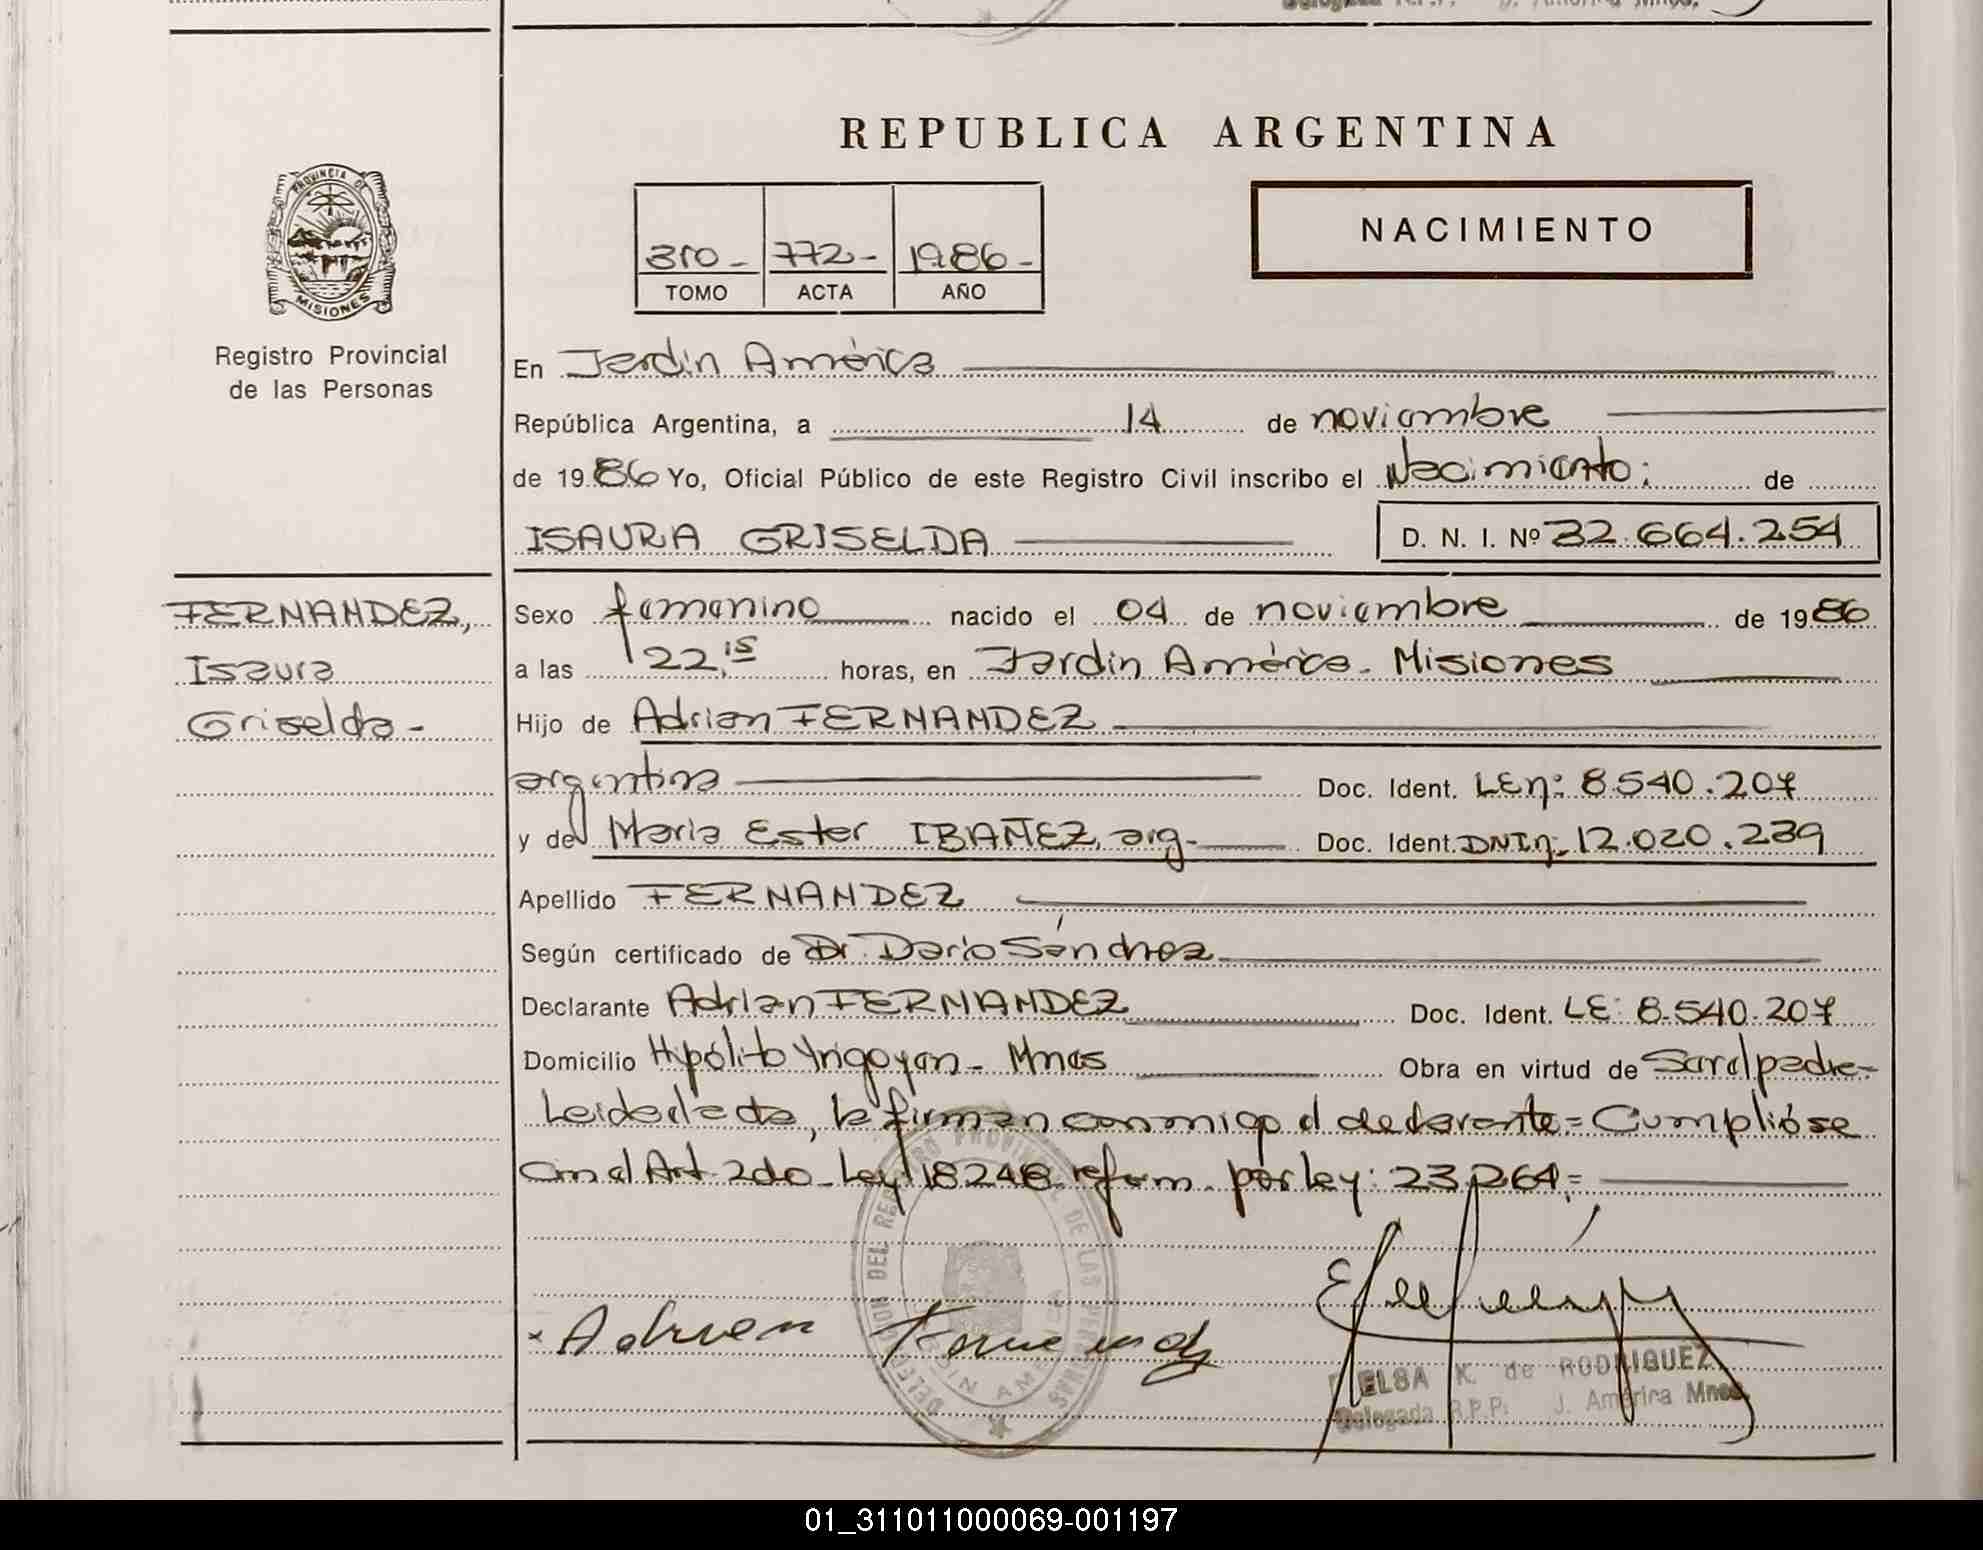 REPUBLICA ARGENTINA
PROVINCIA DE
MISIONES
Registro Provincial
de las Personas
310 - 772 - 1986 -
TOMO ACTA AÑO
NACIMIENTO
En Jardín América
República Argentina, a 14 de noviembre
de 1986 Yo, Oficial Público de este Registro Civil inscribo el Nacimiento: de
ISAURA GRISELDA D. N. I. Nº 32.664.254
FERNANDEZ,
Isaura
Griselda -
Sexo femenino nacido el 04 de noviembre de 1986
a las 22,15 horas, en Jardín América - Misiones
Hijo de Adrian FERNANDEZ
argentina Doc. Ident. LEn: 8.540.207
y de Maria Ester IBAÑEZ, arg- Doc. Ident. DNIn: 12.020.239
Apellido FERNANDEZ
Según certificado de Dr. Dario Sánchez
Declarante Adrian FERNANDEZ Doc. Ident. LE: 8.540.207
Domicilio Hipólito Yrigoyen - Mnes Obra en virtud de Ser el padre-
Leida el acta, la firman conmigo el declarante= Cumplióse
con el Art 2do - Ley 18248 reform. por ley: 23264;=
DELEGACION DEL REGISTRO PROVINCIAL DE LAS PERSONAS
JARDIN AMERICA
Adrian Fernandez
ELSA K. de RODRIGUEZ
Delegada R.P.P. J. América Mnes.
01_311011000069-001197